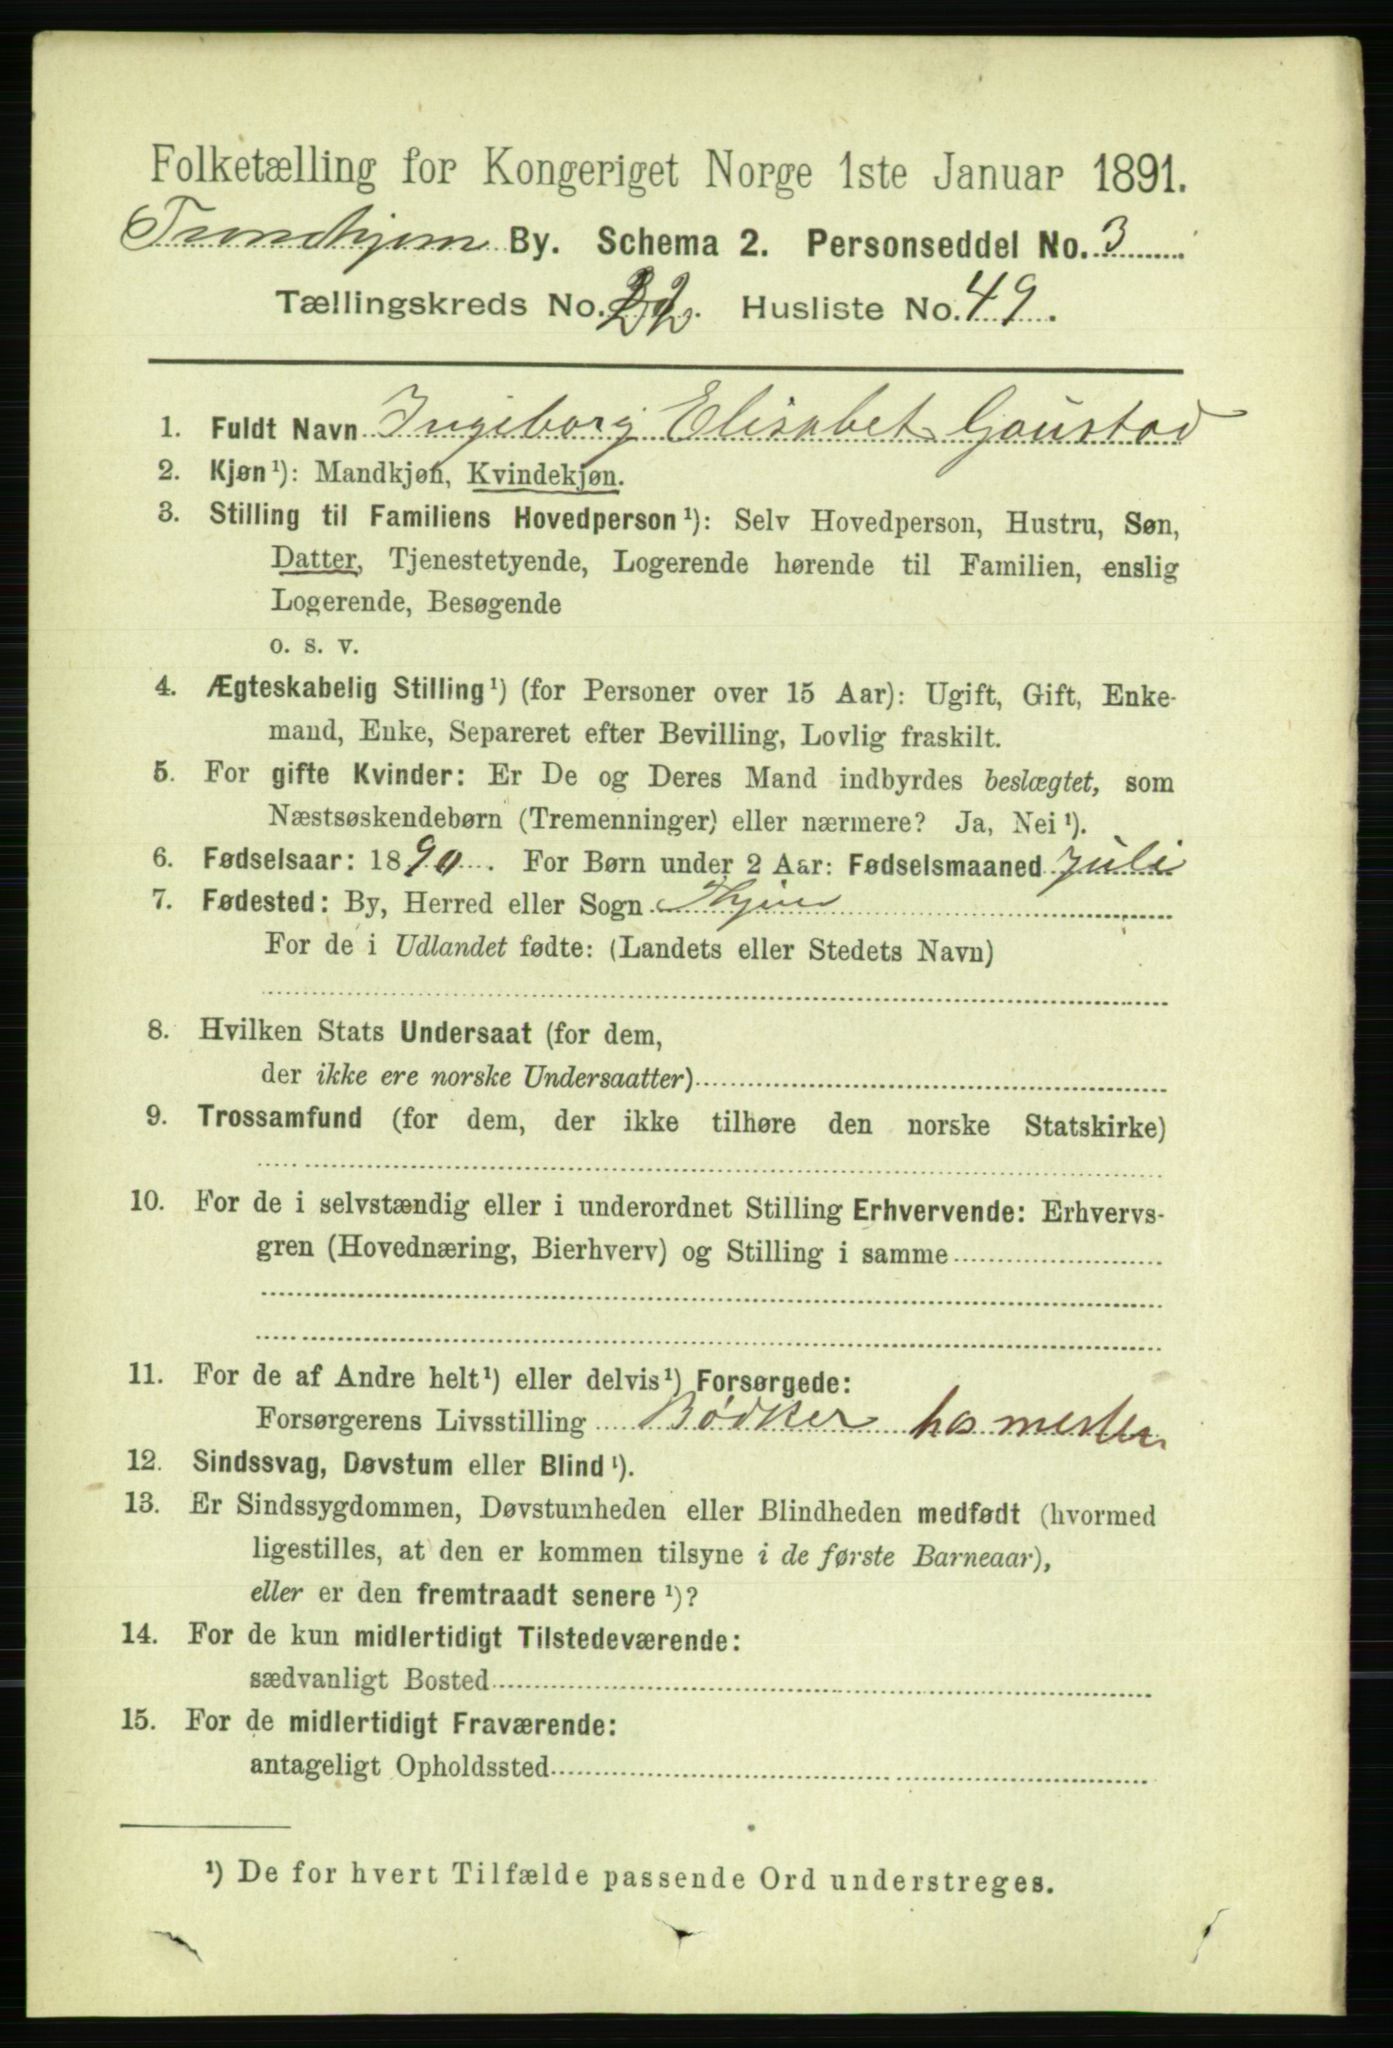 Folketælling for Kongeriget Norge 1ste Januar 1891.
Trondhjem By. Schema 2. Personseddel No. 3
Tællingskreds No. 22. Husliste No. 49.
1. Fuldt Navn Ingeborg Elisabet Gaustad
2. Kjøn¹): Mandkjøn, Kvindekjøn.
3. Stilling til Familiens Hovedperson¹): Selv Hovedperson, Hustru, Søn,
Datter, Tjenestetyende, Logerende hørende til Familien, enslig
Logerende, Besøgende
o. s. v.
4. Ægteskabelig Stilling¹) (for Personer over 15 Aar): Ugift, Gift, Enke-
mand, Enke, Separeret efter Bevilling, Lovlig fraskilt.
5. For gifte Kvinder: Er De og Deres Mand indbyrdes beslægtet, som
Næstsøskendebørn (Tremenninger) eller nærmere? Ja, Nei¹).
6. Fødselsaar: 1890. For Børn under 2 Aar: Fødselsmaaned Juli
7. Fødested: By, Herred eller Sogn Thjem
For de i Udlandet fødte: (Landets eller Stedets Navn)
8. Hvilken Stats Undersaat (for dem,
der ikke ere norske Undersaatter)
9. Trossamfund (for dem, der ikke tilhøre den norske Statskirke)
10. For de i selvstændig eller i underordnet Stilling Erhvervende: Erhvervs-
gren (Hovednæring, Bierhverv) og Stilling i samme
11. For de af Andre helt¹) eller delvis¹) Forsørgede:
Forsørgerens Livsstilling Bødker hos mester
12. Sindssvag, Døvstum eller Blind¹).
13. Er Sindssygdommen, Døvstumheden eller Blindheden medfødt (hvormed
ligestilles, at den er kommen tilsyne i de første Barneaar),
eller er den fremtraadt senere¹)?
14. For de kun midlertidigt Tilstedeværende:
sædvanligt Bosted
15. For de midlertidigt Fraværende:
antageligt Opholdssted
¹) De for hvert Tilfælde passende Ord understreges.